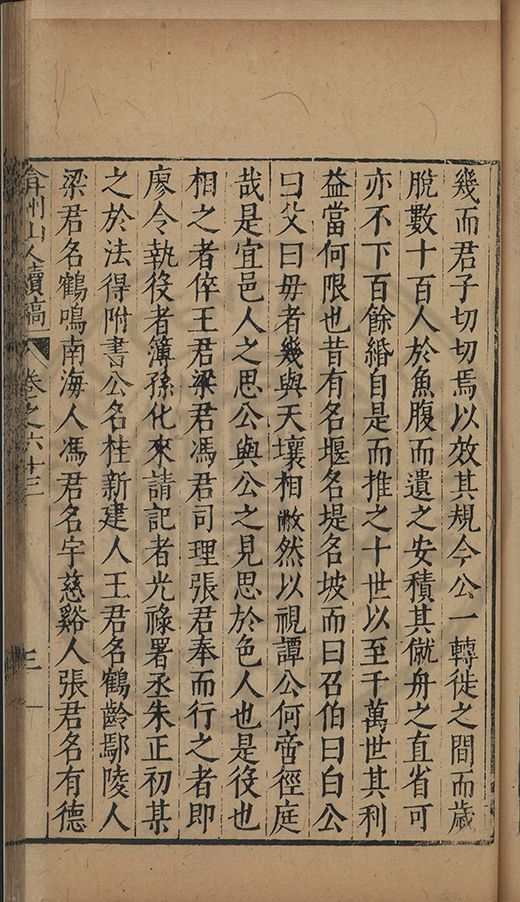 幾而君子切切焉以效其規今公一轉徙之間而歲
脫數十百人於魚腹而遺之安積其僦舟之直省可
亦不下百餘緡自是而推之十世以至千萬世其利
益當何限也昔有名堰名堤名坡而曰召伯曰白公
曰父曰母者幾與天壤相敝然以視譚公何啻徑庭
哉是宜邑人之思公與公之見思於邑人也是役也
相之者倅王君梁君馮君司理張君奉而行之者即
廖令執役者簿孫化來請記者光祿署丞朱正初某
之於法得附書公名桂新建人王君名鶴齡鄢陵人
梁君名鶴鳴南海人馮君名宇慈谿人張君名有德
弇州山人續稿 卷之六十三 三